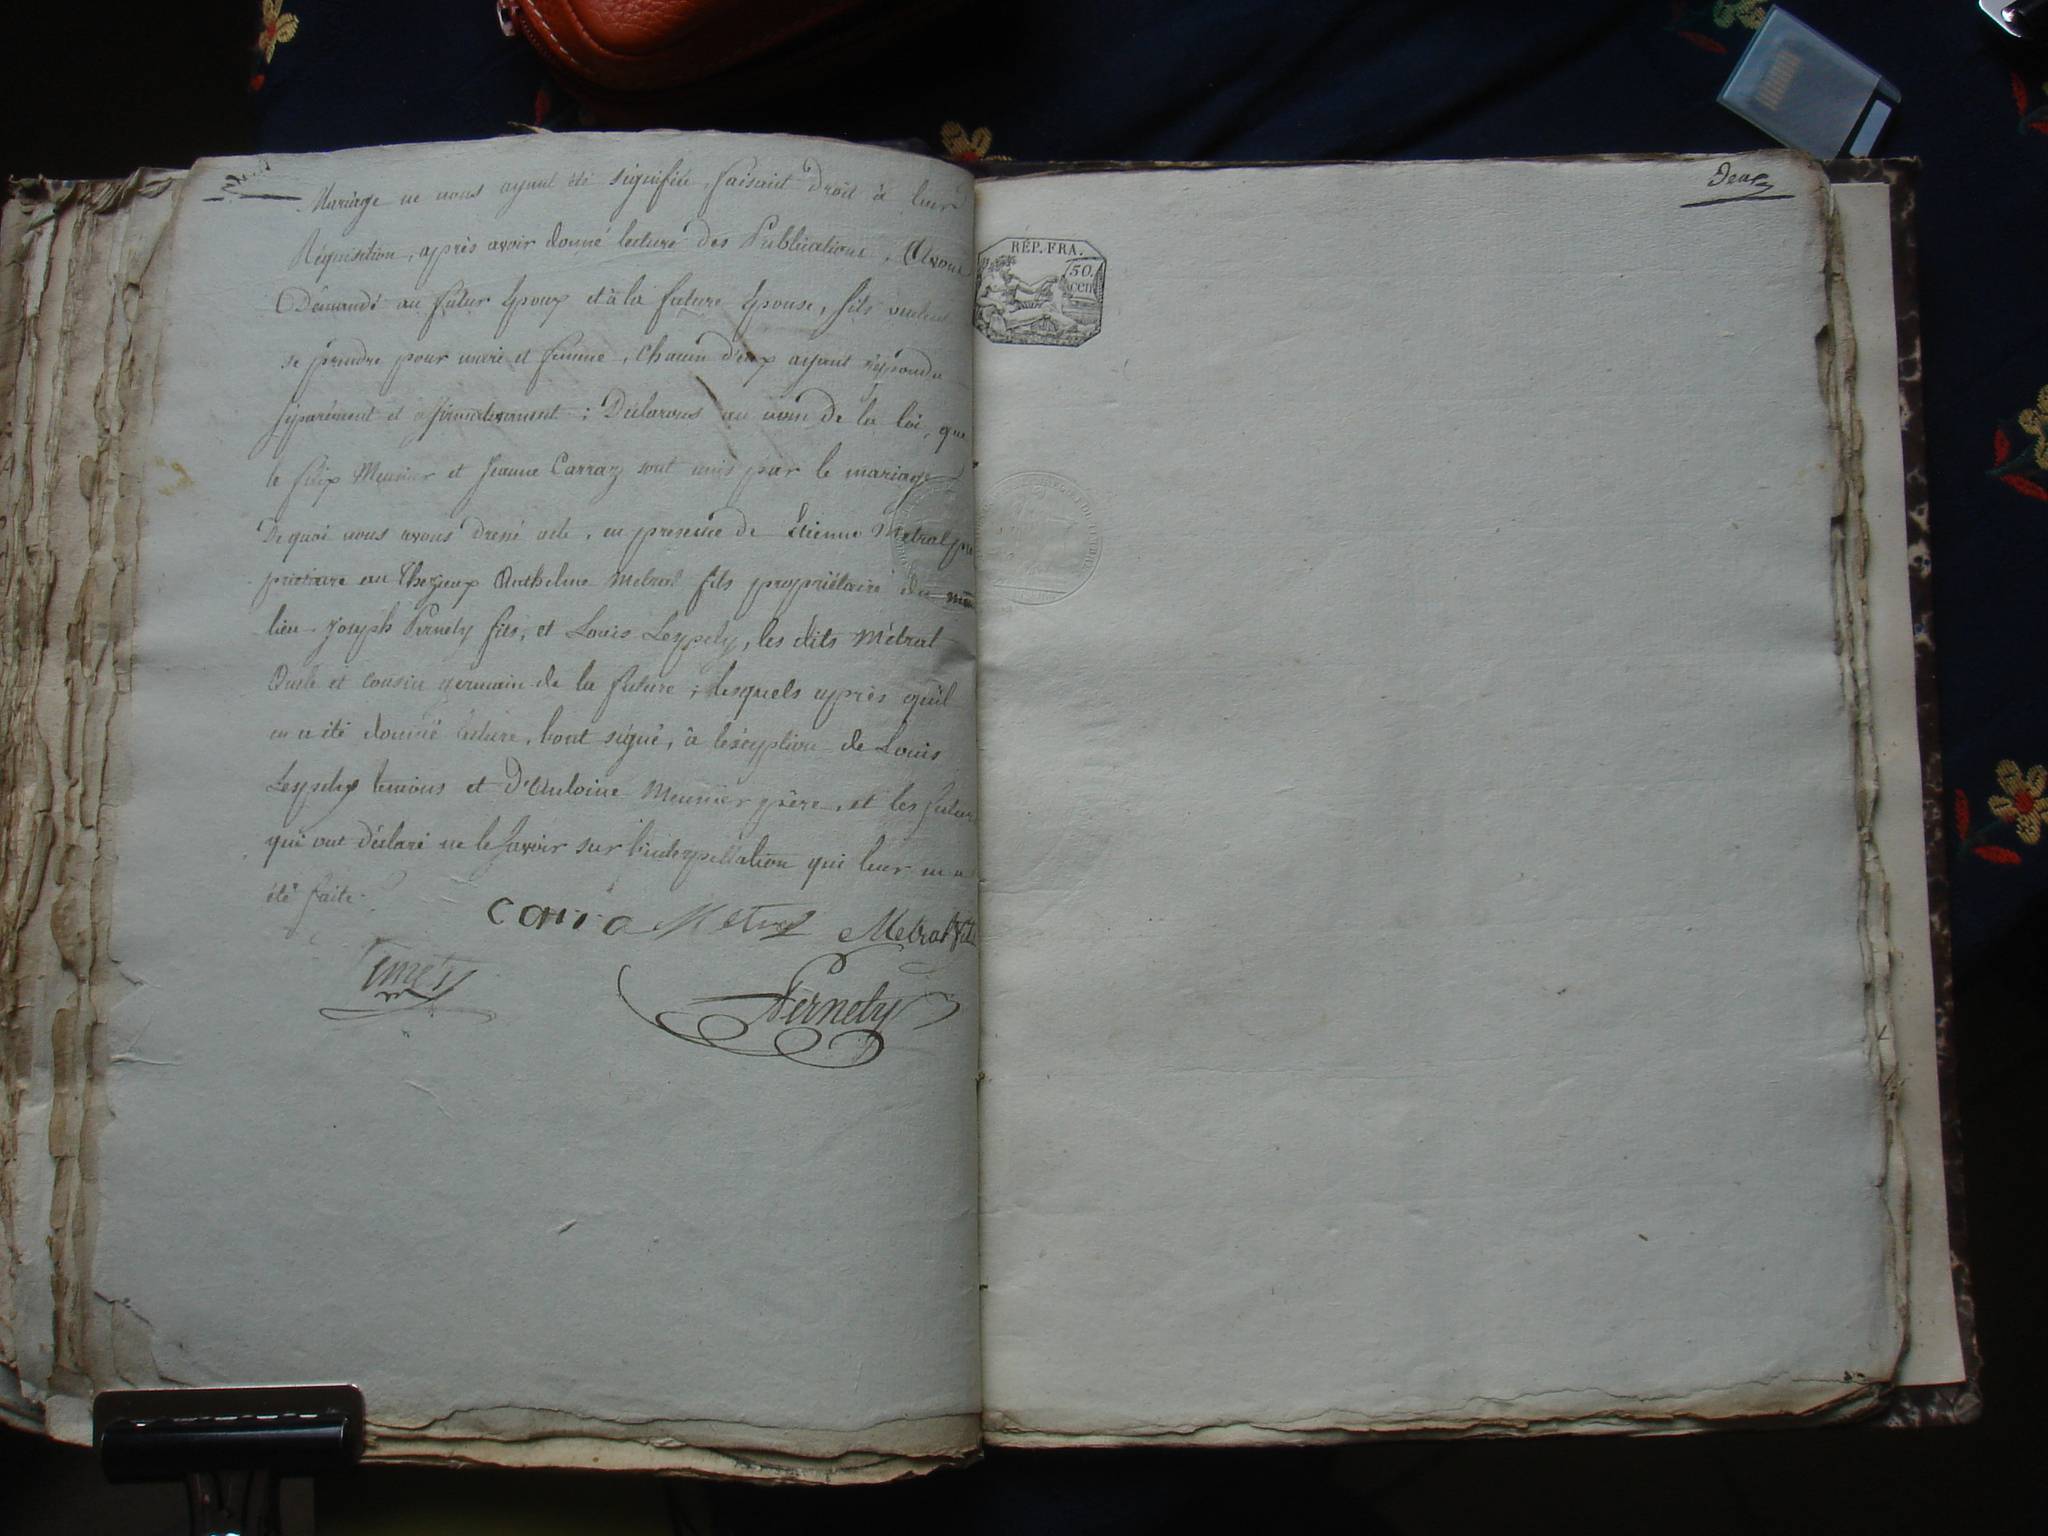 Mariage ne nous ayant été signifiée, faisant Droit à leur
Réquisition, après avoir donné lecture des Publications, Avons
Demandé au futur Epoux et à la future Epouse, s'ils veulent
se prendre pour mari et femme, chacun d'eux ayant répondu
séparément et affirmativement; Déclarons au nom de la loi, que
le Meunier et Jeanne Carraz sont unis par le mariage
De quoi nous avons dressé acte, en presence de Etienne Metral pro
prietaire au Anthelme Metral fils propriétaire du même
lieu Joseph Pernety fils, et Louis Leypely, les dits Métral
Oncle et cousin germain de la future; lesquels après qu'il
en a été donné lecture, l'ont signé, à de Louis
temoins et D'Antoine Meunier père, et les futurs
qui ont déclaré ne le savoir sur l'interpellation qui leur en a
été faite.
Metral Metral fils
Pernety
Deux
RÉP. FRA.
50.
cen